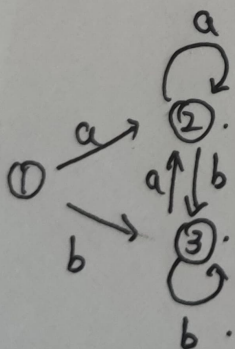 a
②
a
①
a
b
b
③
b